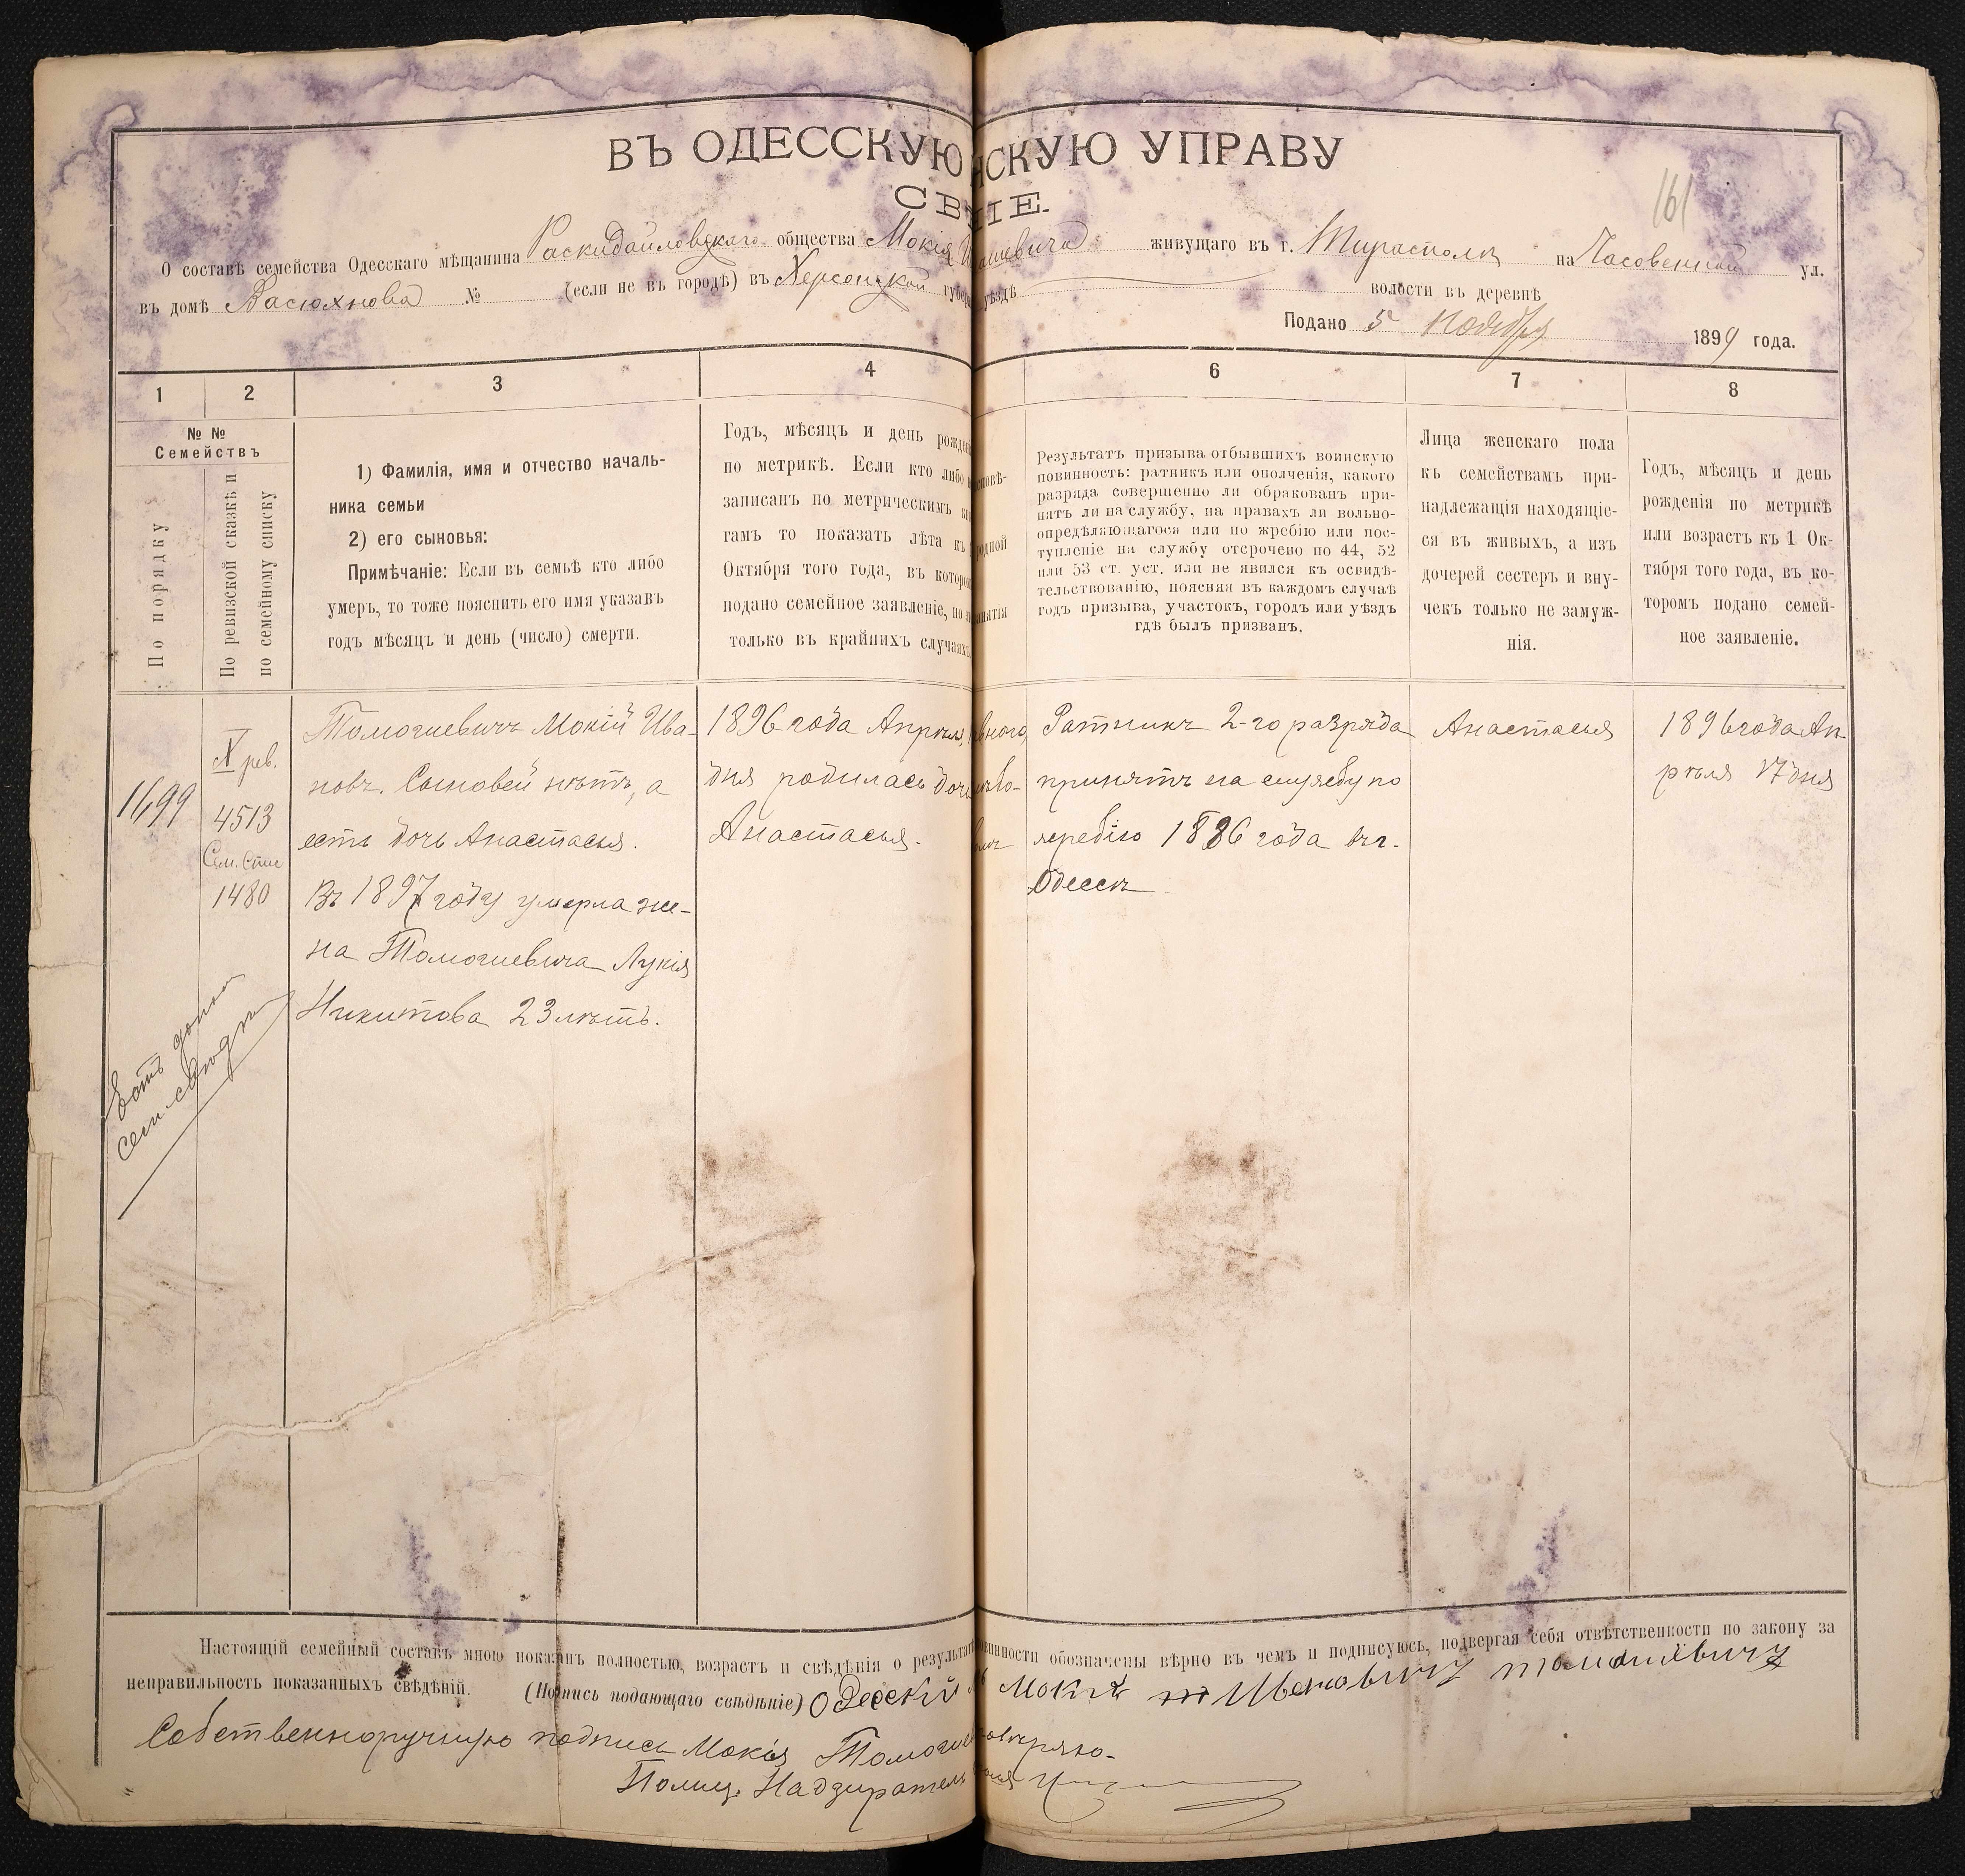 ВЪ ОДЕССКУЮ НСКУЮ УПРАВУ
СВ НІЕ.
161
О составѣ семейства Одесскаго мѣщанина Раскидайловскаго общества Мокія живущаго въ г. Тирасполѣ на Часовенной ул.
въ домѣ № (если не въ городѣ) въ Херсонской губер уѣздѣ волости въ деревнѣ
Подано 5 Ноября 1899 года.
1 2 3 4 6 7 8
№ №
Семействъ
По порядку
По ревизской сказкѣ и
по семейному списку
1) Фамилія, имя и отчество началь-
ника семьи
2) его сыновья:
Примѣчаніе: Если въ семьѣ кто либо
умеръ, то тоже пояснить его имя указавъ
годъ мѣсяцъ и день (число) смерти.
Годъ, мѣсяцъ и день рожден
по метрикѣ. Если кто либо
записанъ по метрическимъ кн
гамъ то показать лѣта къ
Октября того года, въ которо
подано семейное заявленіе, но
только въ крайнихъ случаяхъ
повѣ-
одной
анятія
Результатъ призыва отбывшихъ воинскую
повинность: ратникъ или ополченія, какого
разряда совершенно ли обракованъ при-
нятъ ли на службу, на правахъ ли вольно-
опредѣляющагося или по жребію или пос-
тупленіе на службу отсрочено по 44, 52
или 53 ст. уст. или не явился къ освидѣ-
тельствованію, поясняя въ каждомъ случаѣ
годъ призыва, участокъ, городъ или уѣздъ
гдѣ былъ призванъ.
Лица женскаго пола
къ семействамъ при-
надлежащія находящіе-
ся въ живыхъ, а изъ
дочерей сестеръ и вну-
чекъ только не замуж-
нія.
Годъ, мѣсяцъ и день
рожденія по метрикѣ
или возрастъ къ 1 Ок-
тября того года, въ ко-
торомъ подано семей-
ное заявленіе.
1699
X рев.
4513
Сем. Спис
1480
Томогиевичъ Мокій Ива-
новъ. Сыновей нѣтъ, а
есть дочь Анастасья.
Въ 1897 году умерла же-
на Томогиевича Лукія
Никитова 23 лѣтъ.
1896 года Апрѣля
дня родилась доч
Анастасья.
Ратникъ 2-го разряда
принятъ на службу по
жребію 1886 года въ г.
Одессѣ
Анастасья
1896 года Ап-
рѣля 17 дня
Настоящій семейный составъ мною показанъ полностью, возрастъ и свѣдѣнія о результат овинности обозначены вѣрно въ чемъ и подписуюсь, подвергая себя отвѣтственности по закону за
неправильность показанныхъ свѣдѣній. (Подпись подающаго свѣдѣніе) Одескій Мокій Ивановичъ
Собственноручную подпись Мокія Томогие овѣряю-
Полиц. Надзиратель